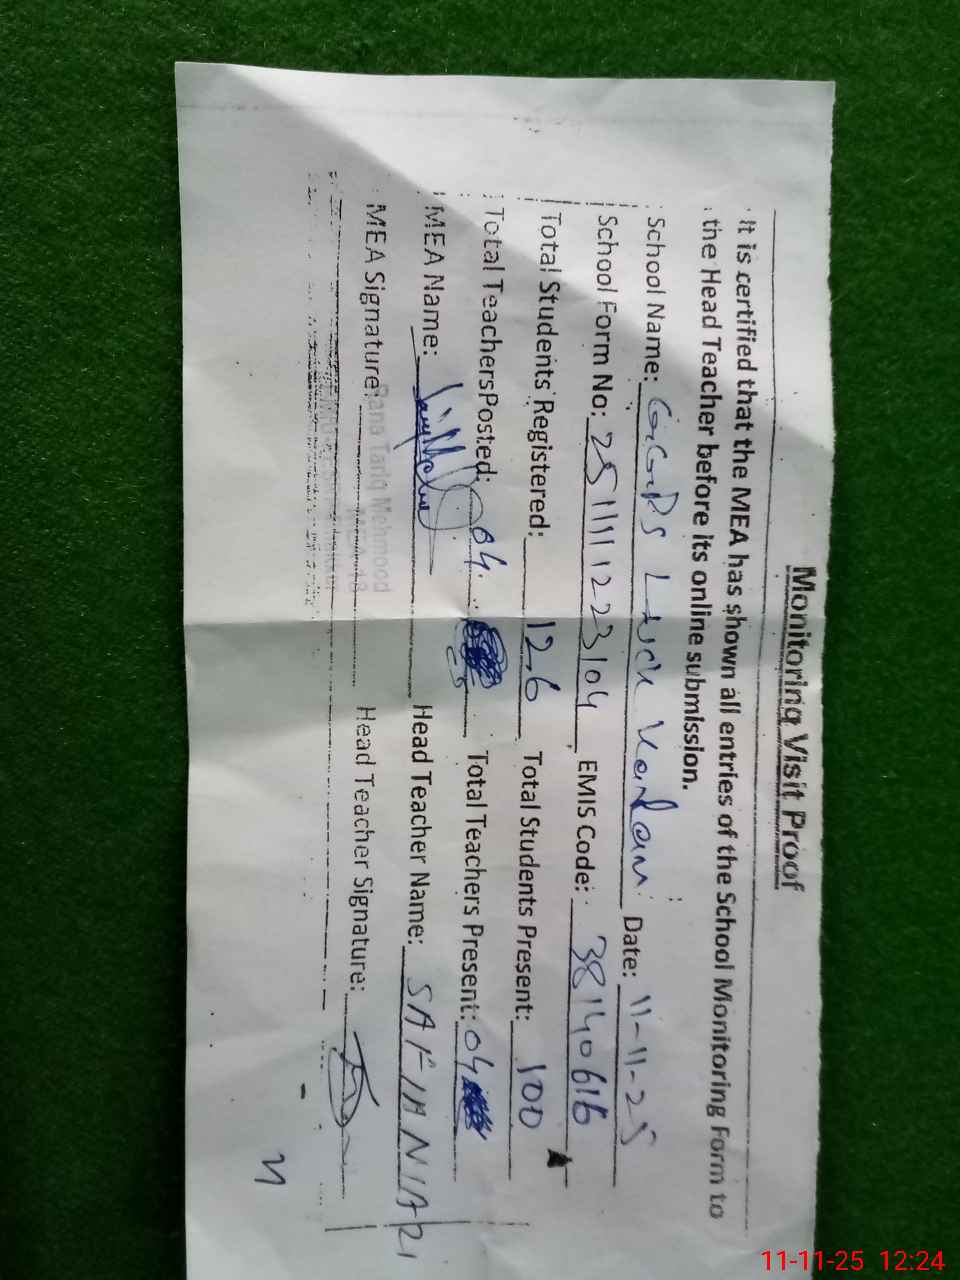 Monitoring Visit Proof
It is certified that the MEA has shown all entries of the School Monitoring Form to
the Head Teacher before its online submission.
School Name: GGPS Date: 11-11-25
School Form No: 251111223104 EMIS Code: 38140616
Total Students Registered: 126 Total Students Present: 100
Total TeachersPosted: 04 Total Teachers Present: 04
MEA Name: Head Teacher Name: SAFIA NIAZI
MEA Signature: Head Teacher Signature:
Rana Tariq Mehmood
11-11-25 12:24